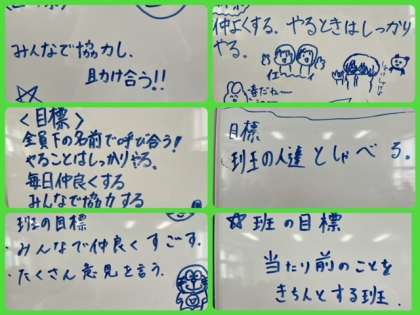 みんなで協力し、
助け合う!!
仲よくする。やるときはしっかり
やる。
イェーイ
<目標>
全員下の名前で呼び合う!
やることはしっかりやる。
毎日仲良くする
みんなで協力する
目標
班王の人達としゃべる。
班の目標
・みんなで仲良くすごす。
・たくさん意見を言う。
☆班の目標
当たり前のことを
きちんとする班